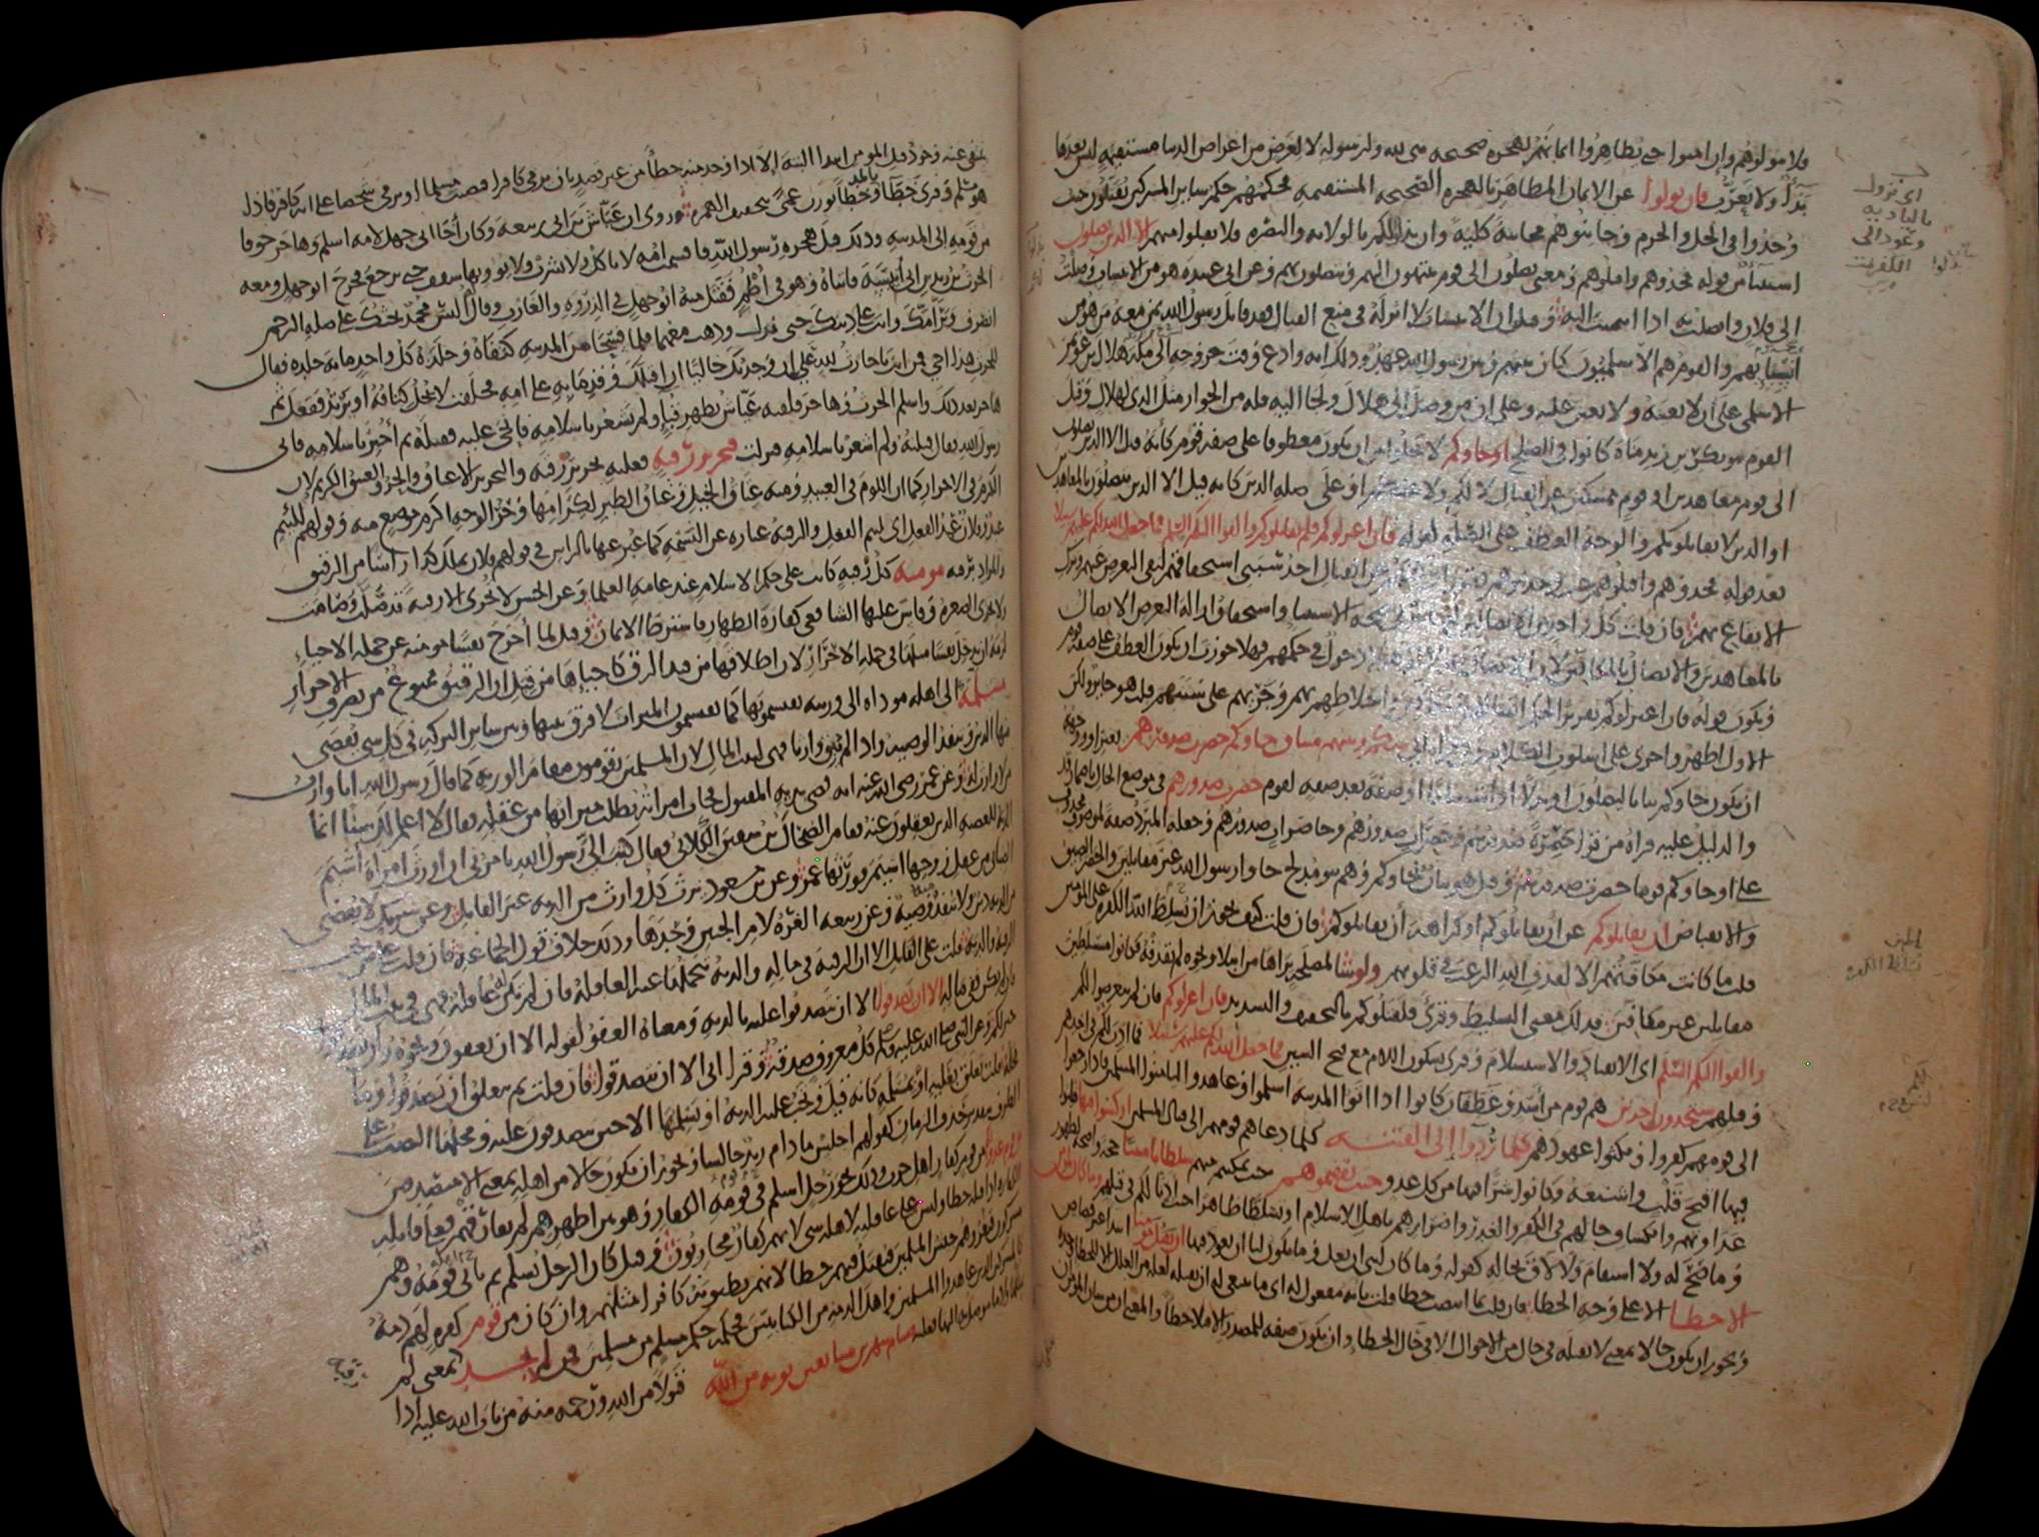 فلا تتولوهم وإن آمنوا حتى يظاهروا إيمانهم بهجرة صحيحة هي لله ولرسوله لا لغرض من أغراض الدنيا مستقيمة ليس بعدها
بداء ولا تعرّب فان تولوا عن الايمان المظاهر بالهجرة الصحيحة المستقيمة فحكمهم حكم سائر المشركين يقتلون حيث
وجدوا في الحل والحرم وجانبوهم مجانبة كلية وان بذلوا لكم الولاية والنصرة فلا تقبلوا منهم الا الذين يصلون
استثناء من قوله فخذوهم واقتلوهم ومعنى يصلون الى قوم ينتهون اليهم ويتصلون بهم وعن ابي عبيدة هو من الانتساب وصلت
الى فلان واتصلت به اذا انتميت اليه وقيل ان الانتساب لا اثر له في منع القتال فقد قاتل رسول الله بمن معه من هو من
أنسابهم والقوم هم الاسلميون كان بينهم وبين رسول الله عهد وذلك انه وادع وقت خروجه الى مكة هلال بن عويمر
الاسلمي على ان لا يعينه ولا يعين عليه وعلى ان من وصل الى هلال ولجأ اليه فله من الجوار مثل الذي لهلال وقيل
القوم بنو بكر بن زيد مناة كانوا في الصلح او جاؤكم لا يخلو من ان يكون معطوفا على صفة قوم كأنه قيل الا الذين يصلون
الى قوم معاهدين او قوم ممسكين عن القتال لا لكم ولا عليكم او على صلة الذين كانه قيل الا الذين يتصلون بالمعاهدين
او الذين لا يقاتلونكم والوجه العطف على الصلة لقوله فان اعتزلوكم فلم يقاتلوكم والقوا اليكم السلم فما جعل الله لكم عليهم سبيلا
بعد قوله فخذوهم واقتلوهم حيث وجدتموهم فقرر ان كفهم عن القتال احد سببي استحقاقهم لنفي التعرض عنهم وترك
الايقاع بهم فان قلت كل واحد من الاتصالين له تأثير في صحة الاستثناء واستحقاق ازالة التعرض الاتصال
بالمعاهدين والاتصال بالمكافين
ويكون قوله فان اعتزلوكم تقريرا لحكم اتصالهم بالمكافين واختلاطهم بهم وجريهم على سننهم قلت هو جائز ولكن
الاول اظهر واجرى على اسلوب الكلام وفي قراءة ابي بينكم وبينهم ميثاق جاؤكم حصرت صدورهم بغير او ووجهه
ان يكون جاؤكم بيانا ليصلون او بدلا او استئنافا او صفة بعد صفة لقوم حصرت صدورهم في موضع الحال باضمار قد
والدليل عليه قراءة من قرأ حصرة صدورهم وحصرات صدورهم وحاصرات صدورهم وجعله المبرد صفة لموصوف محذوف
على او جاؤكم قوما حصرت صدورهم وقيل هو بيان لجاؤكم وهم بنو مدلج جاؤا رسول الله غير مقاتلين والحصر الضيق
والانقباض أن يقاتلوكم عن أن يقاتلوكم او كراهة أن يقاتلوكم فان قلت كيف يجوز ان يسلط الله الكفرة على المؤمنين
قلت ما كانت مكافتهم الا لقذف الله الرعب في قلوبهم ولو شاء لمصلحة يراها من ابتلاء ونحوه لم يقذفه فكانوا متسلطين
مقاتلين غير مكافين فذلك معنى التسليط وقرئ فلقتلوكم بالتخفيف والتشديد فان اعتزلوكم فان لم يتعرضوا لكم
والقوا اليكم السلم اى الانقياد والاستسلام وقرئ بسكون اللام مع فتح السين فما جعل الله لكم عليهم سبيلا فما اذن لكم في اخذهم
وقتلهم ستجدون اخرين هم قوم من أسد وغطفان كانوا اذا اتوا المدينة اسلموا وعاهدوا ليامنوا المسلمين فاذا رجعوا
الى قومهم كفروا ونكثوا عهودهم كلما ردوا الى الفتنة كلما دعاهم قومهم الى قتال المسلمين اركسوا فيها قلبوا
فيها اقبح قلب واشنعه وكانوا شرا فيها من كل عدو حيث ثقفتموهم حيث تمكنتم منهم سلطانا مبينا حجة واضحة لظهور
عداوتهم وانكشاف حالهم في الكفر والغدر واضرارهم باهل الاسلام او تسلطا ظاهرا حيث اذنا لكم في قتلهم وما كان لمؤمن
وما صح له ولا استقام ولا لاق بحاله كقوله وما كان لنبي ان يغل وما يكون لنا ان نعود فيها ان يقتل مؤمنا ابتداء غير قصاص
الا خطأ الا على وجه الخطا فان قلت بما انتصب خطا قلت بانه مفعول له اى ما ينبغي له ان يقتله لعلة من العلل الا للخطا وحده
ويجوز ان يكون حالا بمعنى لا يقتله في حال من الاحوال الا في حال الخطا وان يكون صفة للمصدر الا قتلا خطأ والمعنى ان من شان المؤمن
اى نزول
بالبادية
وعود الى
الكفر
ينتفي عنه وجود قتل المومن ابتداء البتة إلا اذا وجد منه خطأ من غير قصد بان يرمي كافرا فيصيب مسلما او يرمي شخصا على انه كافر فاذا
هو مسلم وقرئ خطاء بالمد وخطا بوزن عمى بتخفيف الهمزة وروي ان عياش بن ابي ربيعة وكان أخا ابي جهل لامه اسلم وهاجر خوفا
من قومه الى المدينة وذلك قبل هجرة رسول الله فاقسمت امه لا تاكل ولا تشرب ولا يؤويها سقف حتى يرجع فخرج ابو جهل ومعه
الحرث بن زيد بن ابي أنيسة فاتياه وهو في أطم ففتل منه ابو جهل في الذروة والغارب وقال أليس محمد يحثك على صلة الرحم
انصرف وبر امك وانت على دينك حتى نزل وذهب معهما فلما فسحا عن المدينة كتفاه وجلده كل واحد مائة جلدة فقال
للحرث هذا اخي فمن انت يا حارث لله علي ان وجدتك خاليا ان اقتلك وقدما به على امه فحلفت لا يحل كتافه او يرتد ففعل ثم
هاجر بعد ذلك واسلم الحرث وهاجر فلقيه عياش بظهر قباء ولم يشعر باسلامه فانحى عليه فقتله ثم أخبر باسلامه فاتى
رسول الله فقال قتلته ولم اشعر باسلامه فنزلت فتحرير رقبة فعليه تحرير رقبة والتحرير الاعتاق والحر والعتيق الكريم لان
الكرم في الاحرار كما ان اللؤم في العبيد ومنه عتاق الخيل وعتاق الطير لكرامها وحر الوجه اكرم موضع منه وقولهم للئيم
عبد وفلان عبد الفعل اى لئيم الفعل والرقبة عبارة عن النسمة كما عبر عنها بالراس في قولهم فلان يملك كذا راسا من الرقيق
والمراد برقبة مومنة كل رقبة كانت على حكم الاسلام عند عامة العلماء وعن الحسن لا تجزى الا رقبة قد صلت وصامت
ولا تجزى الصغيرة وقاس عليها الشافعي كفارة الظهار فاشترط الايمان وقيل لما أخرج نفسا مومنة عن جملة الاحياء
لزمه ان يدخل نفسا مثلها في جملة الاحرار لان اطلاقها من قيد الرق كاحيائها من قبل ان الرقيق ممنوع من تصرف الاحرار
مسلمة الى اهله موداة الى ورثته يقتسمونها كما يقتسمون الميراث لا فرق بينها وبين سائر التركة في كل شي يقضى
منها الدين وينفذ الوصية واذا لم يبق وارثا فهي لبيت المال لان المسلمين يقومون مقام الورثة كما قال رسول الله انا وارث
من لا وارث له وعن عمر رضي الله عنه انه قضى بدية المقتول فجاءت امراته تطلب ميراثها من عقله فقال لا اعلم لك شيئا انما
الدية للعصبة الذين يعقلون عنه فقام الضحاك بن سفين الكلابي فقال كتب الى رسول الله يامرني ان اورث امراة اشيم
الضبابي من عقل زوجها اشيم فورثها عمر وعن بن مسعود يرث كل وارث من الدية غير القاتل وعن شريك لا يقضى
من الدية دين ولا تنفذ وصية وعن ربيعة الغرة لام الجنين وحدها وذلك خلاف قول الجماعة فان قلت على من تجب
الرقبة والدية قلت على القاتل الا ان الرقبة في ماله والدية تتحملها عنه العاقلة فان لم تكن له عاقلة فهي في بيت المال
فان لم يكن ففي ماله الا ان يصدقوا الا ان يتصدقوا عليه بالدية ومعناه العفو كقوله الا ان يعفون ونحوه وان تصدقوا
خير لكم وعن النبي صلى الله عليه وسلم كل معروف صدقة وقرا ابي الا ان يتصدقوا فان قلت بم تعلق ان يصدقوا وما
محله قلت تعلق بعليه او بمسلمة كانه قيل وتجب عليه الدية او يسلمها الا حين يتصدقون عليه ومحلها النصب على
الظرف بتقدير حذف الزمان كقولهم اجلس ما دام زيد جالسا ويجوز ان يكون حالا من اهله بمعنى الا متصدقين
من قوم عدو لكم من قوم كفار اهل حرب وذلك نحو رجل اسلم في قومه الكفار وهو بين اظهرهم لم يفارقهم فعلى قاتله
الكفارة اذا قتله خطا وليس على عاقلته لاهله شي لانهم كفار محاربون وقيل كان الرجل يسلم ثم ياتي قومه وهم
مشركون فيغزوهم جيش المسلمين فيقتل فيهم خطا لانهم يظنونه كافرا مثلهم وان كان من قوم كفرة لهم ذمة
كالمشركين الذين عاهدوا المسلمين واهل الذمة من الكتابيين فحكمه حكم مسلم من مسلمين فمن لم يجد بمعنى لم
يملكها ولا ما يتوصل به اليها فعليه صيام شهرين متتابعين توبة من الله قبولا من الله ورحمة منه من تاب الله عليه اذا